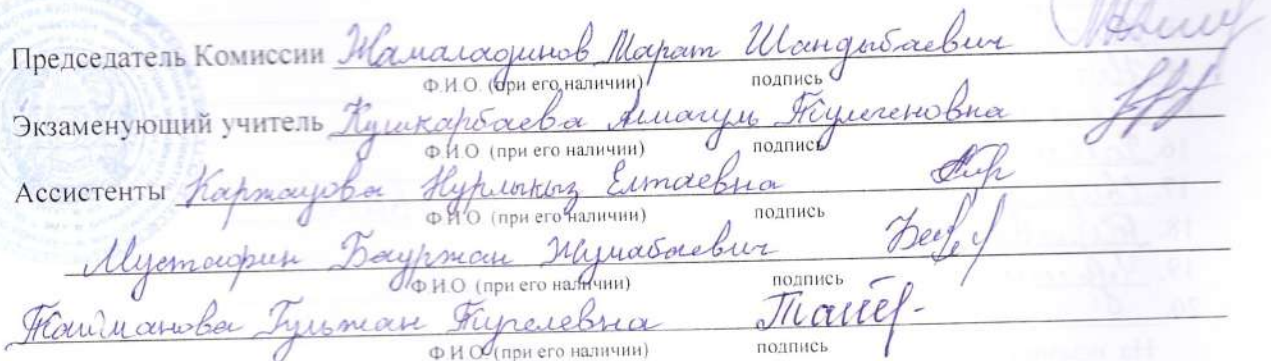 Председатель Комиссии Жамаладинов Марат Шандыбаевич
Ф.И.О. (при его наличии) подпись
Экзаменующий учитель Кушкарбаева Алмагуль Тулегеновна
Ф.И.О. (при его наличии) подпись
Ассистенты Каржауова Нурлыкыз Елтаевна
Ф.И.О. (при его наличии) подпись
Мустафин Бауржан Жумабаевич
Ф.И.О. (при его наличии) подпись
Тайманова Гульжан
Ф.И.О. (при его наличии) подпись